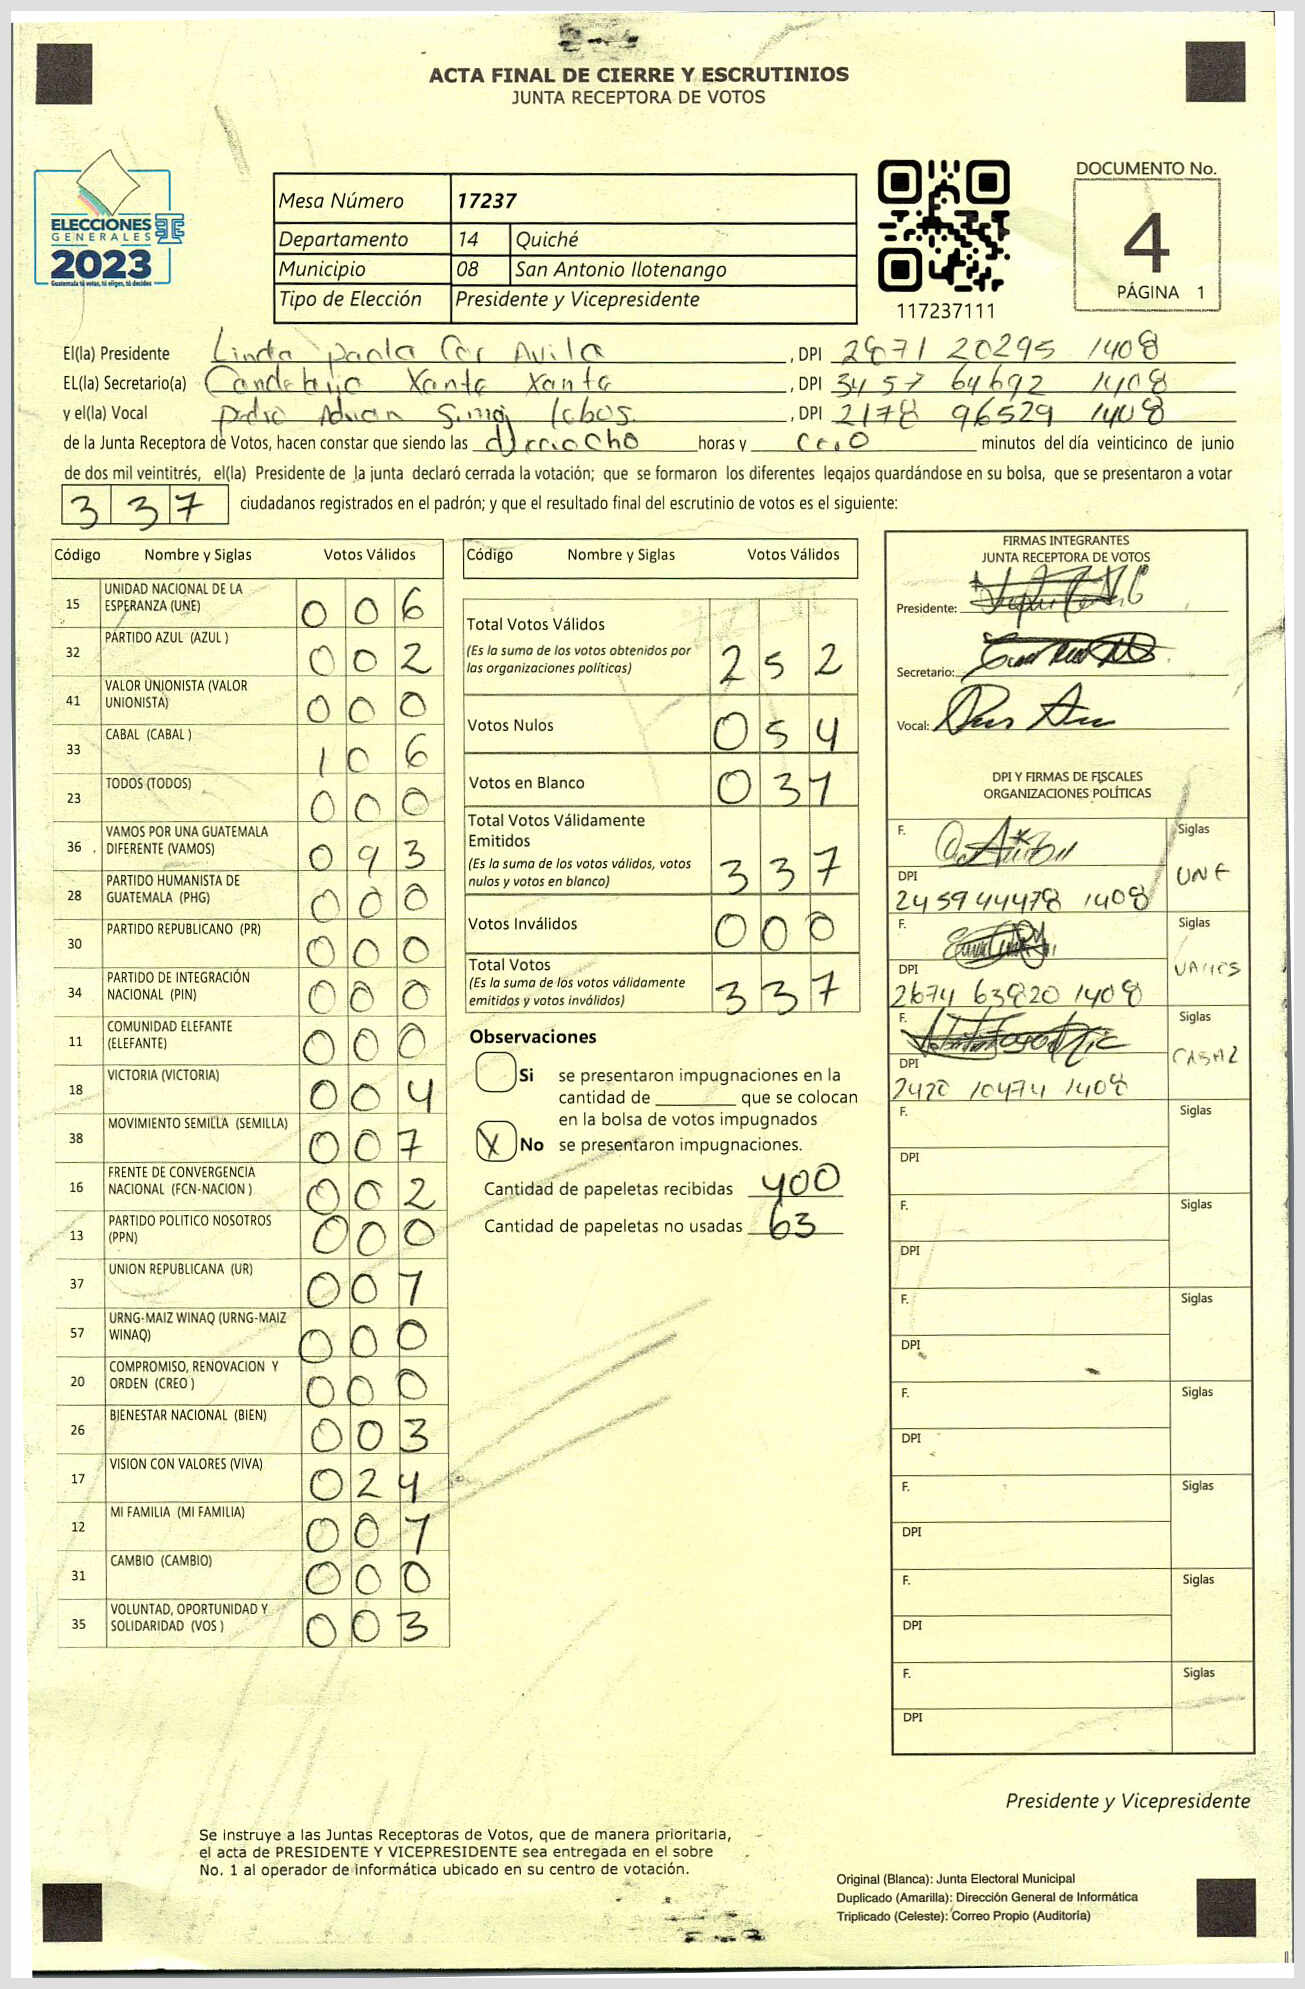 ACTA FINAL DE CIERRE Y ESCRUTINIOS
JUNTA RECEPTORA DE VOTOS
ELECCIONES
GENERALES
2023
Guatemala tú votas, tú eliges, tú decides
Mesa Número 17237
Departamento 14 Quiché
Municipio 08 San Antonio Ilotenango
Tipo de Elección Presidente y Vicepresidente
117237111
DOCUMENTO No.
4
PÁGINA 1
El(la) Presidente Linda Paola Avila , DPI 2871 20295 1408
EL(la) Secretario(a) Xanta Xanta , DPI 3457 64692 1408
y el(la) Vocal Pedro lobos. , DPI 2178 96529 1408
de la Junta Receptora de Votos, hacen constar que siendo las horas y minutos del día veinticinco de junio
de dos mil veintitrés, el(la) Presidente de la junta declaró cerrada la votación; que se formaron los diferentes legajos quardándose en su bolsa, que se presentaron a votar
337 ciudadanos registrados en el padrón; y que el resultado final del escrutinio de votos es el siguiente:
Código Nombre y Siglas Votos Válidos
15 UNIDAD NACIONAL DE LA
ESPERANZA (UNE) 006
32 PARTIDO AZUL (AZUL ) 002
41 VALOR UNIONISTA (VALOR
UNIONISTA) 000
33 CABAL (CABAL ) 106
23 TODOS (TODOS) 000
36 VAMOS POR UNA GUATEMALA
DIFERENTE (VAMOS) 093
28 PARTIDO HUMANISTA DE
GUATEMALA (PHG) 000
30 PARTIDO REPUBLICANO (PR) 000
34 PARTIDO DE INTEGRACIÓN
NACIONAL (PIN) 000
11 COMUNIDAD ELEFANTE
(ELEFANTE) 000
18 VICTORIA (VICTORIA) 004
38 MOVIMIENTO SEMILLA (SEMILLA) 007
16 FRENTE DE CONVERGENCIA
NACIONAL (FCN-NACION ) 002
13 PARTIDO POLITICO NOSOTROS
(PPN) 000
37 UNION REPUBLICANA (UR) 007
57 URNG-MAIZ WINAQ (URNG-MAIZ
WINAQ) 000
20 COMPROMISO, RENOVACION Y
ORDEN (CREO ) 000
26 BIENESTAR NACIONAL (BIEN) 003
17 VISION CON VALORES (VIVA) 024
12 MI FAMILIA (MI FAMILIA) 001
31 CAMBIO (CAMBIO) 000
35 VOLUNTAD, OPORTUNIDAD Y
SOLIDARIDAD (VOS ) 003
Código Nombre y Siglas Votos Válidos
Total Votos Válidos
(Es la suma de los votos obtenidos por
las organizaciones políticas) 252
Votos Nulos 054
Votos en Blanco 031
Total Votos Válidamente
Emitidos
(Es la suma de los votos válidos, votos
nulos y votos en blanco) 337
Votos Inválidos 000
Total Votos
(Es la suma de los votos válidamente
emitidos y votos inválidos) 337
Observaciones
Si se presentaron impugnaciones en la
cantidad de ________ que se colocan
en la bolsa de votos impugnados
X No se presentaron impugnaciones.
Cantidad de papeletas recibidas 400
Cantidad de papeletas no usadas 63
FIRMAS INTEGRANTES
JUNTA RECEPTORA DE VOTOS
Presidente:
Secretario:
Vocal:
DPI Y FIRMAS DE FISCALES
ORGANIZACIONES POLÍTICAS
F. Siglas
UNE
DPI
2459 44478 1408
F. Siglas
VAMOS
DPI
2674 63820 1408
F. Siglas
CABAL
DPI
2420 10474 1408
F. Siglas
DPI
F. Siglas
DPI
F. Siglas
DPI
F. Siglas
DPI
F. Siglas
DPI
F. Siglas
DPI
F. Siglas
DPI
Presidente y Vicepresidente
Se instruye a las Juntas Receptoras de Votos, que de manera prioritaria,
el acta de PRESIDENTE Y VICEPRESIDENTE sea entregada en el sobre
No. 1 al operador de informática ubicado en su centro de votación.
Original (Blanca): Junta Electoral Municipal
Duplicado (Amarilla): Dirección General de Informática
Triplicado (Celeste): Correo Propio (Auditoría)